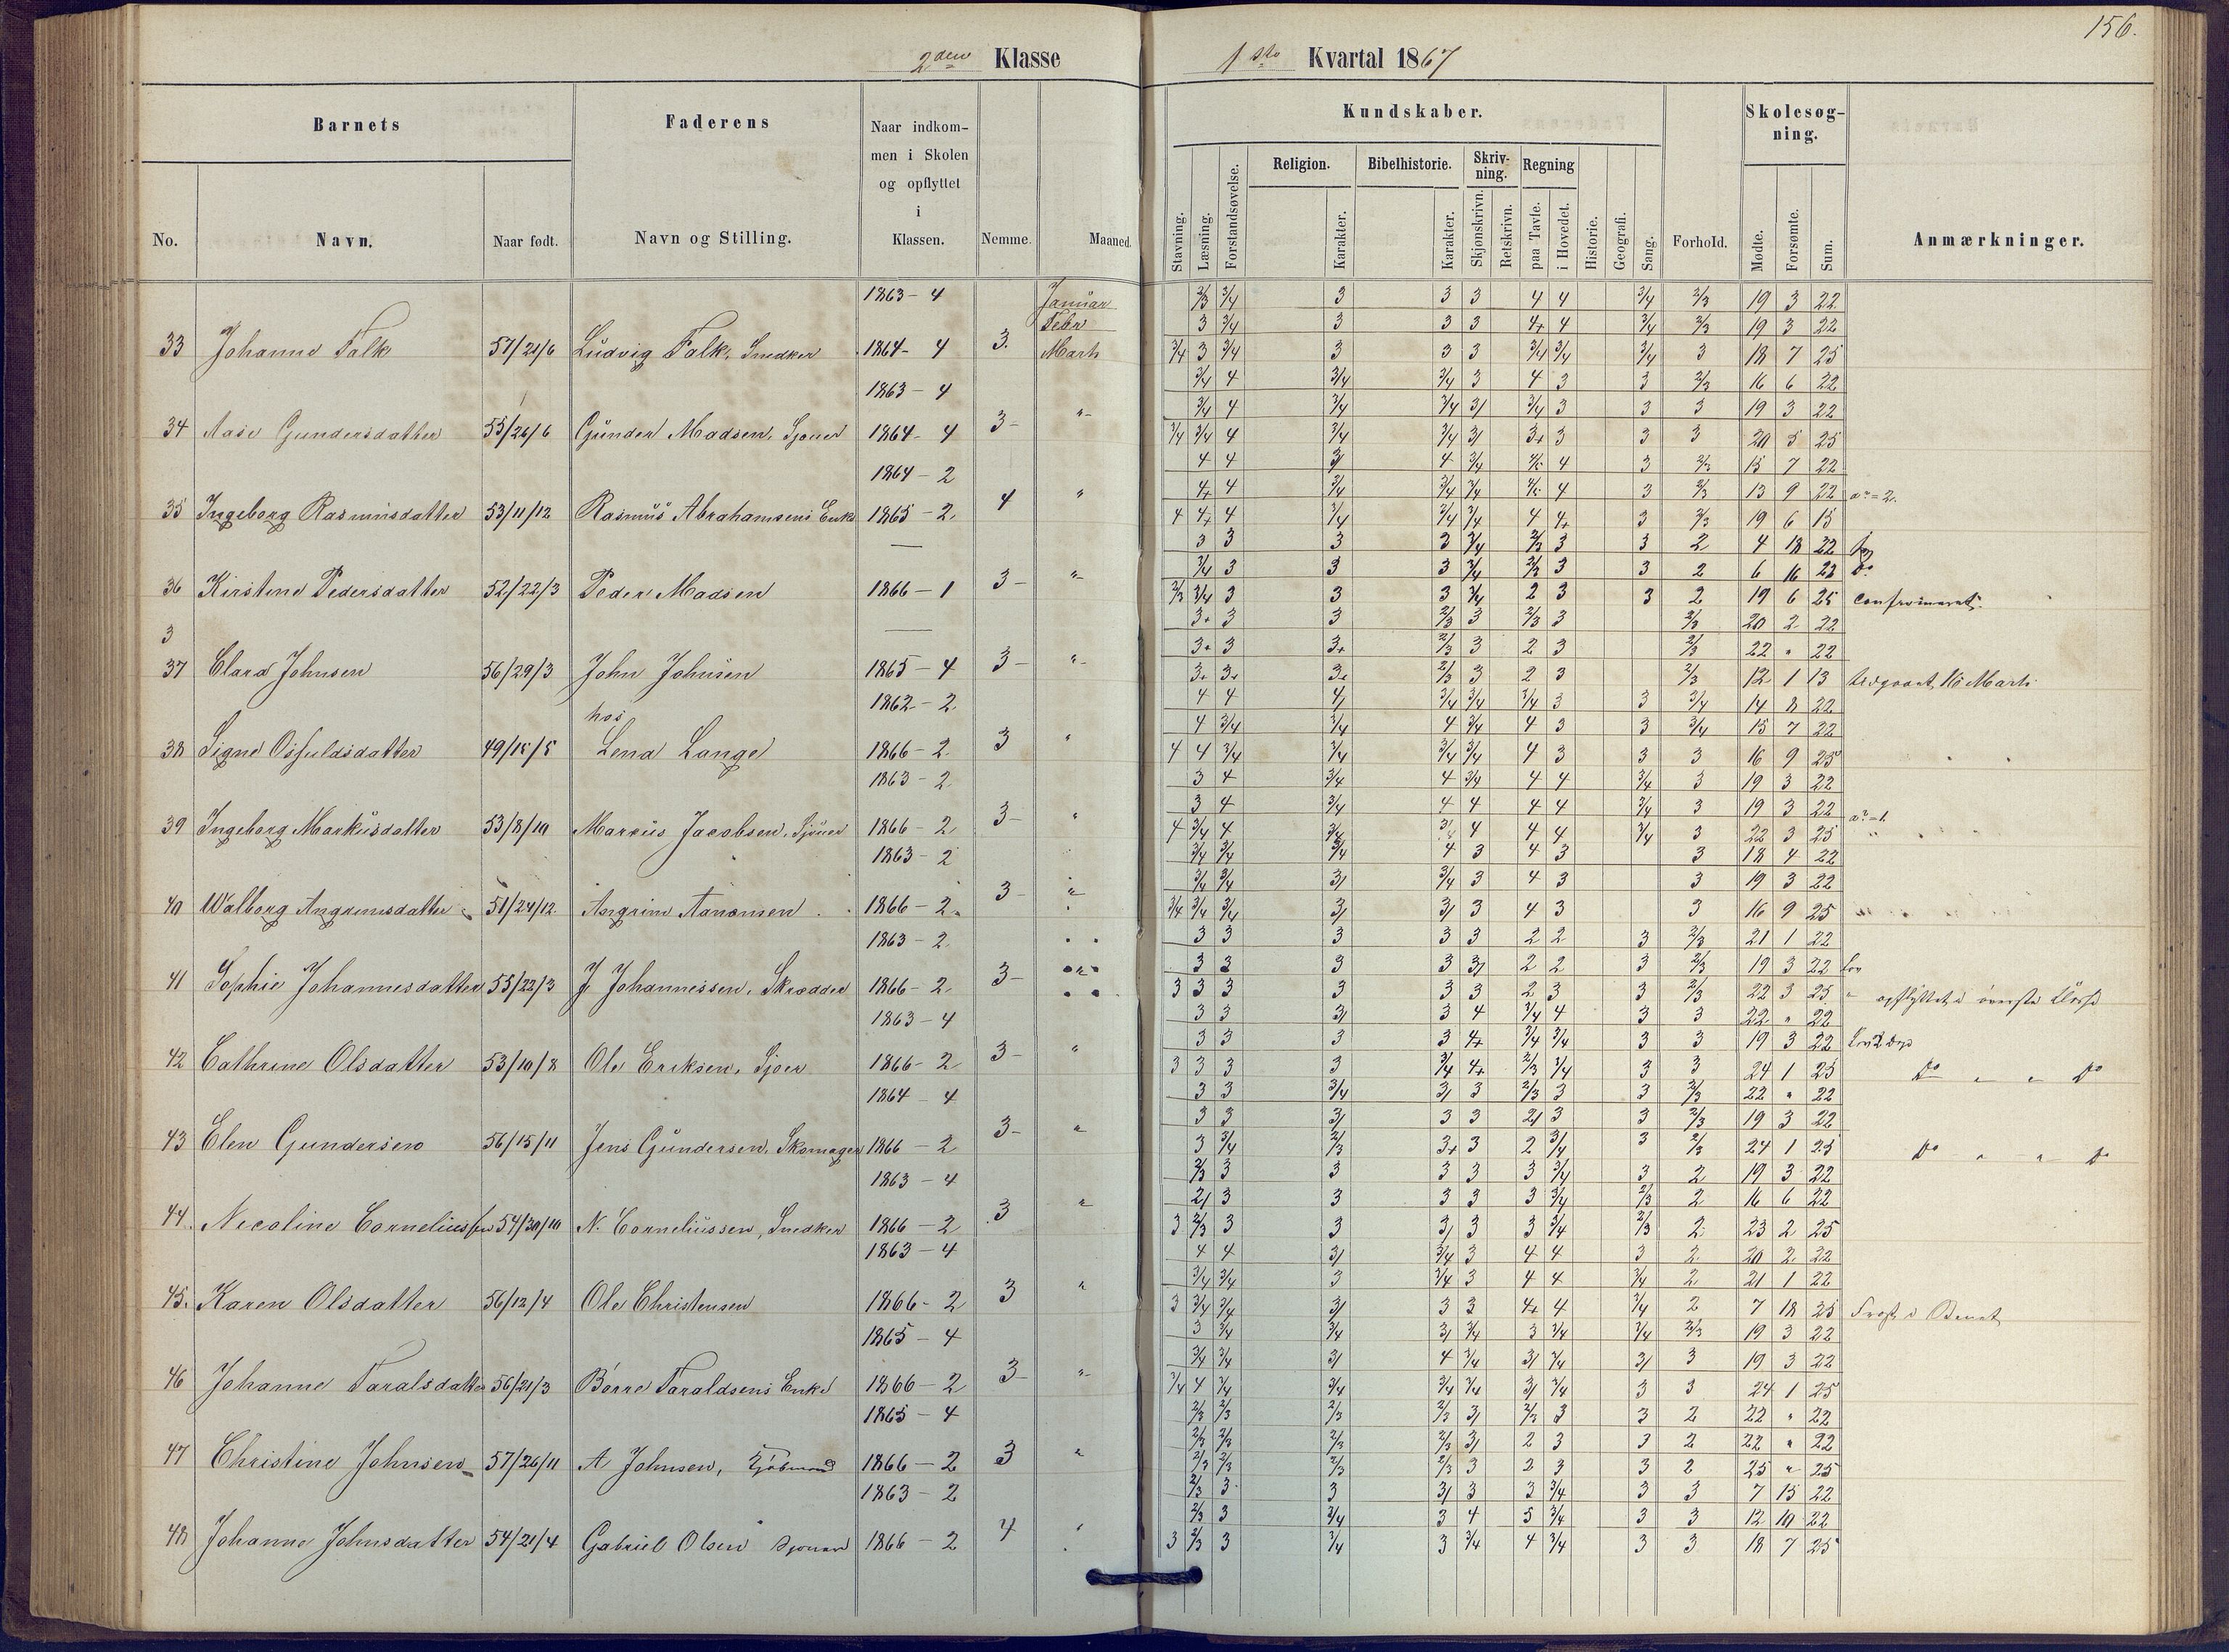 156.
2den Klasse 1ste Kvartal 1867
Barnets Faderens Naar indkom- men i Skolen og opflyttet i Klassen. Nemme. Maaned. Kundskaber. Forhold. Skolesøg- ning. Anmærkninger.
No. Navn. Naar født. Navn og Stilling.
Stavning. Læsning. Forstandsøvelse. Religion. Karakter. Bibelhistorie. Karakter. Skriv- ning. Skjønskrivn. Retskrivn. Regning paa Tavle. i Hovedet. Historie. Geografi. Sang. Mødte. Forsømte. Sum.
1863-4 Januar 2/3 3/4 3 3 3 4 4 3/4 2/3 19 3 22
Febr 3 3/4 3 3 3 4+ 4 3/4 2/3 19 3 22
33 Johanne Falk 57/21/6 Ludvig Falk, Snedker 1864-4 3. Marts 3/4 3 3/4 3 3 3 3/4 3/4 3/4 3 18 7 25
1863-4 3/4 4 3/4 3/4 3 4 3 3 2/3 16 6 22
3/4 4 3/4 3/4 3/ 3/4 3 3 3 19 3 22
34 Aase Gundersdatter 55/26/6 Gunder Madsen, Sjouer 1864-4 3- "- 3/4 3/4 4 3/4 3/4 3/ 3+ 3 3 3 20 5 25
1864-2 4 4 3/ 4 3/4 4/5 4 3 2/3 15 7 22
4+ 4 3/4 3/4 3/4 4/5 4 3 2/3 13 9 22
35 Ingeborg Rasmusdatter 53/11/12 Rasmus Abrahamsens Enke 1865-2. 4 " 4 4+ 4 3/4 3/4 3/4 4 4+ 3 2/3 19 6 15
— 3 3 3 3 3/4 2/3 3 3 2 4 18 22
3/4 3 3 3 3/4 2/3 3 3 2 6 16 22 Do
36 Kirstine Pedersdatter 52/22/3 Peder Madsen 1866-1 3- "- 2/3 3/4 3 3 3 3/4 2 3 3 2 19 6 25 Confirmeret.
3 — 3+ 3 3 2/3 3 2/3 3 2/3 20 2 22
3+ 3 3+ 2/3 3 2 3 2/3 22 " 22
37 Clara Johnsen 56/29/3 John Johnsen 1865-4 3- "- 3+ 3+ 3+ 2/3 3 2 3 2/3 12 1 13 Udgaaet 16 Marts
1862-2 4 4 4/ 3/4 3/4 3/4 3 3 3/4 14 8 22
hos 4 3/4 3/4 4 3/4 4 3 3 3/4 15 7 22
38 Signe Osfuldsdatter 49/15/5 Lena Lange 1866-2 3 " 4 4 3/4 3/4 3/4 3/4 4 3 3 3 16 9 25
1863-2 3 4 3/4 4 3/4 4 4 3/4 3 19 3 22
3 4 3/4 4 4 4 4 3/4 3 19 3 22
39 Ingeborg Markusdatter 53/8/10 Marcus Jacobsen, Sjouer 1866-2 3- " 4 3/4 4 3/4 3/4 4 4 4 3/4 3 22 3 25
1863-2 3/4 3/4 3/4 4 3 4 3 3 18 4 22
3/4 3/4 3/ 3/4 3 4 3 3 19 3 22
40 Walborg Angrimsdatter 51/24/12. Angrim Aanonsen 1866-2. 3- " 3/4 3/4 3/4 3/ 3/ 3 4 3 3 16 9 25
1863-2 3 3 3 3 3 2 2 3 2/3 21 1 22
3 3 3 3 3/ 2 2 3 2/3 19 3 22
41 Sophie Johannesdatter 55/22/3 J. Johannessen, Skrædder 1866-2 3- " 3 3 3 3 3 3 2 3 3 2/3 22 3 25 opflyttet i øverste Klasse
1863-4 3 3 3/ 3 4 3/4 4 3 3 22 " 22
3 3 3 3 4+ 3/4 3/4 3 3 19 3 22
42 Cathrine Olsdatter 53/10/8 Ole Eriksen, Sjoer 1866-2 3- " 3 3 3 3 3/4 4+ 2/3 3/4 3 3 24 1 25 Do " " Do
1864-4 3 3 3/4 3/ 3 2/3 3 3 2/3 22 " 22
3 3 3/ 3 3 2/ 3 3 2/3 19 3 22
43 Elen Gundersen 56/15/11 Jens Gundersen, Skomager 1866-2 3- " 3 3/4 2/3 3+ 3 2 3/4 3 2/3 24 1 25 Do " " Do
1863-4 2/3 3 3 3 3 3 3/4 3 2 19 3 22
2/ 3 3 3 3 3 3/4 2/3 2 16 6 22
44. Nicoline Corneliussen 54/30/10 N. Corneliussen, Snedker 1866-2 3 " 3 2/3 3 3 3/ 3 3 3/4 2/3 2 23 2 25
1863-4 4 4 3/ 3/4 3 4 4 3 2 20 2 22
3/4 3/4 3 3/4 3 4 4 3/4 2 21 1 22
45. Karen Olsdatter 56/12/4 Ole Christensen 1866-2 3 " 3 3/4 3/4 3/ 3 3 4+ 4 3/4 2 7 18 25 Frost i Benet
1865-4 3 3/4 3/4 3/ 3/4 3 3/4 3/4 2/3 19 3 22
3/4 3/4 3/ 4 3/4 3/ 3/4 3/ 3 19 3 22
46 Johanne Taralsdatter 56/21/3 Børre Taraldsens Enke 1866-2 3- "- 3/4 4 3/4 3/4 3/4 3/4 3/ 3/4 3 3 24 1 25
1865-4 2/3 2/3 2/3 2/3 3/ 2/3 3 3 2 22 " 22
2/3 2/3 2/3 2/3 3/ 2 3 3 2 22 " 22
47 Christine Johnsen 57/26/11 A Johnsen, Kjøbmand 1866-2 3 " 2/3 2/3 2/3 2/3 3 2 3 3 2 25 " 25
1863-2 2/3 3 3 3/ 3 3 3/4 3 3 7 15 22
2/3 3 3/4 3 4 5 3/4 3 3 12 10 22
48 Johanne Johnsdatter 54/21/4 Gabriel Olsen Sjouer 1866-2 4 " 3 2/3 3 3/4 3 3/4 4 3/4 3 3 18 7 25